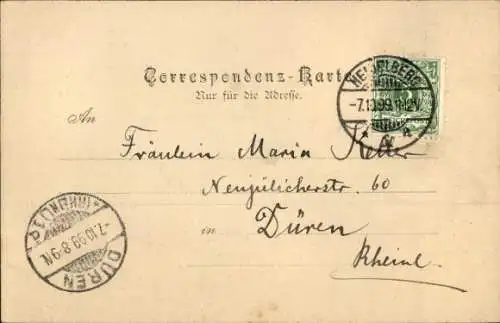 Correspondenz-Karte
Nur für die Adresse.
HEIDELBERG
-7.10.99.11-12V.
An
Fräulein Maria Keller
Neujülicherstr. 60
in Düren
Rheinl.
DÜREN
-7.10.99.8-9N.